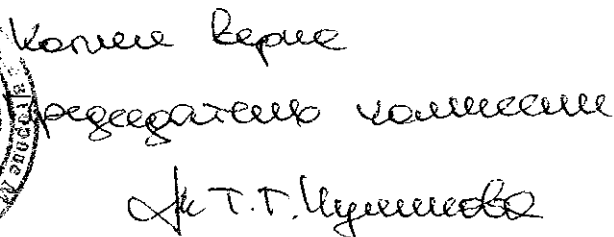 Копия верна
Председатель комиссии
Т.Т.
в городе